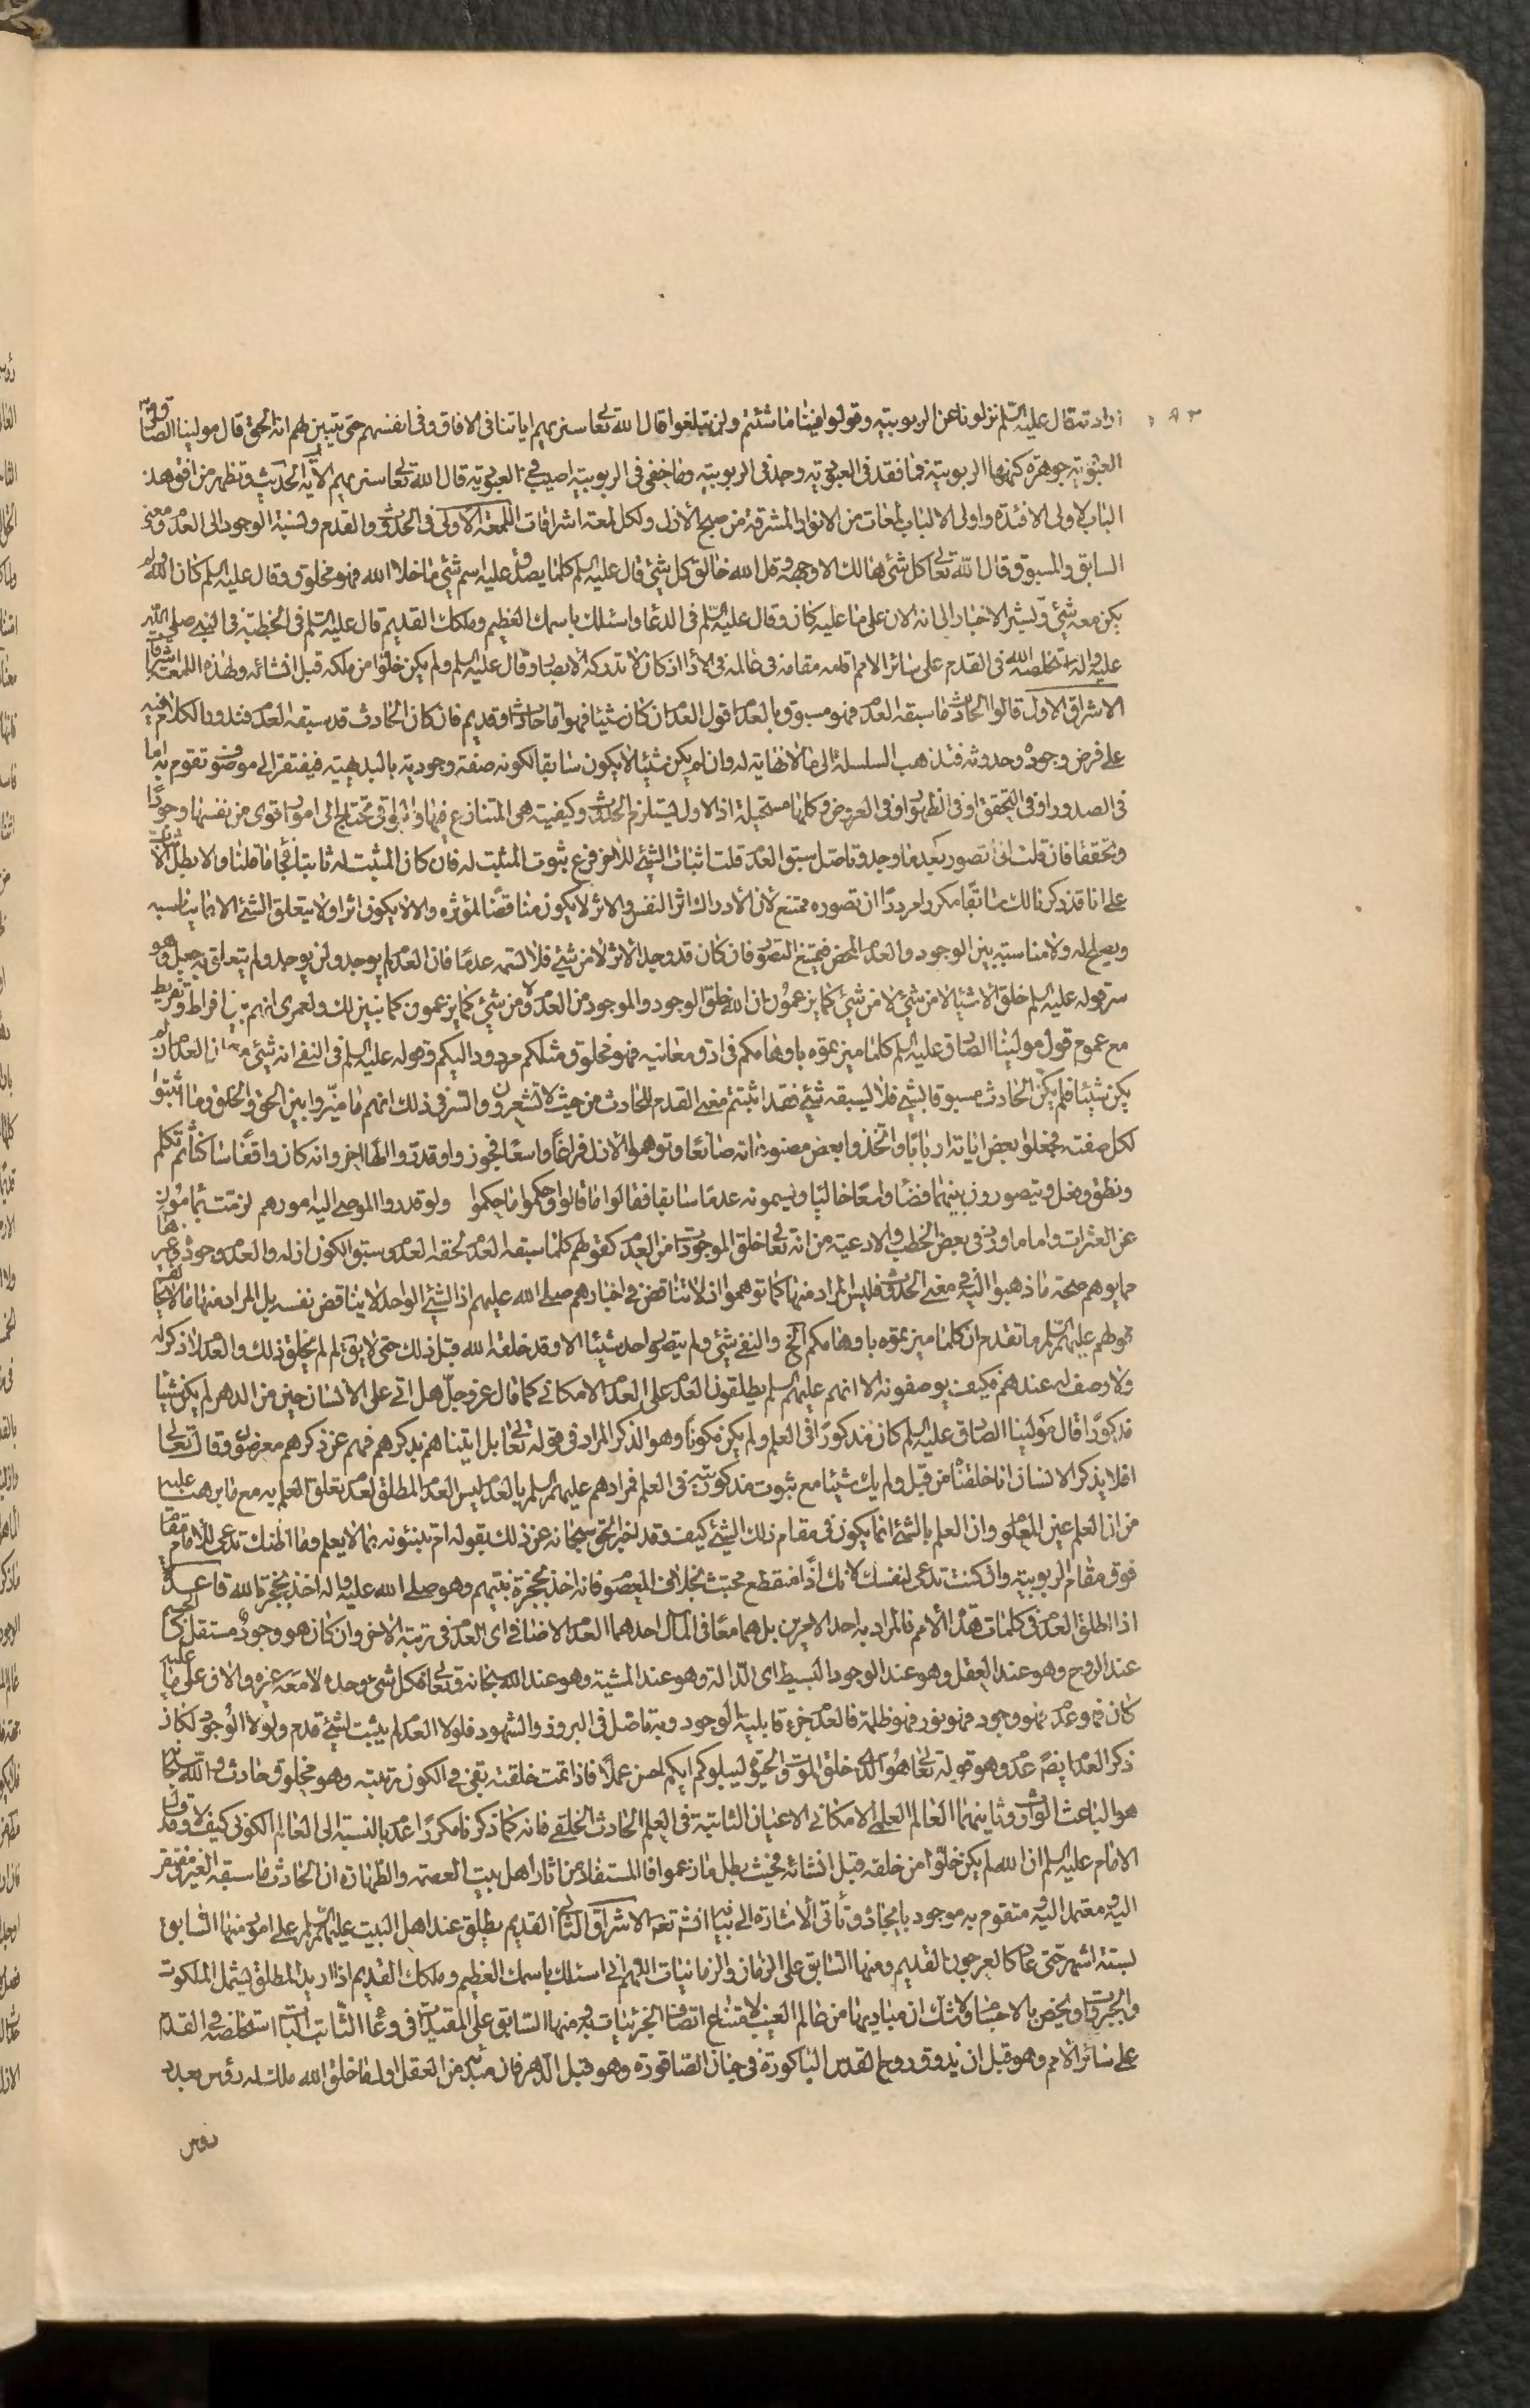 ارادته قال عليه السلم نزلونا عن الربوبيته وقولوا فينا ما شئتم ولن تبلغوا قال الله تعا سنريهم اياتنا فى الافاق وفى انفسهم حتى يتبين لهم انه الحق قال مولينا الصادق
العبودية جوهرة كنهها الربوبيته فما فقد فى العبودية وجد فى الربوبيته وما خفى فى الربوبيته اصيب فى العبودية قال الله تعا سنريهم الاية الحديث وتظهر من افق هذا
الباب لاولى الافئدة واولى الالباب لمعات من الانوار المشرقة من صبح الازل ولكل لمعة اشراقات اللمعة الاولى فى الحدوث والقدم ونسبة الوجود الى العدم ومعنى
السابق والمسبوق قال الله تعا كل شئ هالك الا وجهه وقل الله خالق كل شئ قال عليه السلم كلما يصدق عليه اسم شئ ما خلا الله فهو مخلوق وقال عليه السلم كان الله ولم
يكن معه شئ ويشير الاخبار الى انه الان على ما عليه كان وقال عليه السلم فى الدعا واسئلك باسمك العظيم وملكك القديم قال عليه السلم فى الخطبة فى النبى صلى الله
عليه واله استخلصه الله فى القدم على سائر الامم اقامه مقامه فى عالمه فى الأدا اذ كان لا تدركه الابصار وقال عليه السلم ولم يكن خلوا من ملكه قبل انشائه ولهذه اللمعة اشراقات
الاشراق الاول قالوا الحادث ما سبقه العدم فهو مسبوق بالعدم اقول العدم ان كان شيئا فهو اما حادث او قديم فان كان الحادث قد سبقه العدم فندور الكلام فيه
على فرض وجوده وحدوثه فتذهب السلسلة الى ما لا نهاية له وان لم يكن شيئا لا يكون سابقا لكونه صفة وجودية بالبديهية فيفتقر الى موضوع تقوم به اما
فى الصدور او فى التحقق او فى الظهور او فى العروض وكلها مستحيلة اذ الاول يستلزم الحدوث وكيفيته هى المتنازع فيها والبواقى تحتاج الى امور اقوى من نفسها وجودًا
وتحققا فان قلت انى اتصور بعد ما وجد وتاصل سبق العدم قلت اثبات الشئ للاخر فرع ثبوت المثبت له فان كان المثبت له ثابتا يجئ ما قلنا والا بطل الاثبات
على انا قد ذكرنا لك سابقا مكررا مرددا ان تصوره ممتنع لان الادراك اثر النفس والاثر لا يكون مناقضا لمؤثره والا لا يكون اثرا ولا يتعلق الشئ الا بما يناسبه
ويصلح له ولا مناسبة بين الوجود والعدم المحض فيمتنع التصور فان كان قد وجد الاثر لا من شئ فلا تسمه عدمًا فان العدم لم يوجد ولن يوجد ولم يتعلق به جعل وهو
سر قوله عليه السلم خلق الاشيا لا من شئ لا من شئ كما يزعمون ان الله خلق الوجود والموجود من العدم ولا من شئ كما يزعمون كما نبين لك ولعمرى انهم بين افراط وتفريط
مع عموم قول مولينا الصادق عليه السلم كلما ميزتموه باوهامكم فى ادق معانيه فهو مخلوق مثلكم مردود اليكم وقوله عليه السلم فى النفى انه شئ فان العدم ان لم
يكن شيئا فلم يكن الحادث مسبوقا بشئ فلا يسبقه شئ فقد اثبتم معنى القدم للحادث من حيث لا تشعرون والسر فى ذلك انهم ما ميزوا بين الحق والخلق وما اثبتوا
لكل صفته فجعلوا بعض اياته اربابا واتخذوا بعض مصنوعاته صانعًا وتوهموا الازل فراغا واسعا فجوزوا وقدروا الها اخر وانه كان واقفا ساكنا ثم تكلم
ونطق وفعل ويتصورون بينهما فضاء واسعًا خاليا ويسمونه عدمًا سابقا فقالوا ما قالوا وحكموا ما حكموا ولو قدروا الموصى اليه امورهم لزمت بمامون
عن العثرات واما ما ورد فى بعض الخطب والادعية من انه تعا خلق الموجودات من العدم كقولهم كلما سبقه العدم لحقه العدم وسبق الكون ازله والعدم وجوده وغيرها
مما يوهم صحة ما ذهبوا اليه فى معنى الحدوث فليس المراد منها كما توهموا اذ لا تناقض فى اخبارهم صلى الله عليهم اذ الشئ الواحد لا يناقض نفسه بل المراد منها
قولهم عليهم السلم ما تقدم ان كلما ميزتموه باوهامكم الخ والنفى شئ ولم يتصور احد شيئا الا وقد خلقه الله قبل ذلك حتى لا يق لم لم يخلق ذلك والعدم لا ذكر له
ولا وصف له عندهم فكيف يوصفونه الا انهم عليهم السلم يطلقون العدم على العدم الامكانى كما قال عز وجل هل اتى على الانسان حين من الدهر لم يكن شيئا
مذكورًا قال مولينا الصادق عليه السلم كان مذكورًا فى العلم ولم يكن مكونا وهو الذكر المراد فى قوله تعا بل اتيناهم بذكرهم فهم عن ذكرهم معرضون وقال تعا
افلا يذكر الانسان انا خلقناه من قبل ولم يك شيئا مع ثبوت مذكوريته فى العلم فمرادهم عليهم السلم بالعدم ليس العدم المطلق لعدم تعلق العلم به مع ما برهنت عليه
من ان العلم عين المعلوم وان العلم بالشئ انما يكون فى مقام ذلك الشئ كيف وقد اخبر الحق سبحانه عن ذلك بقوله ام تنبئونه بما لا يعلم وما اظنك تدعى للامام مقاما
فوق مقام الربوبيته وان كنت تدعى لنفسك لانك اذًا منقطع مجتث بخلاف المعصوم فانه اخذ بحجزة نبيهم وهو صلى الله عليه واله اخذ بحجزة الله قاعدة
اذا اطلق العدم فى كلمات هؤلاء الأمم فالمراد به احد الامرين بل هما معًا فى المآل احدهما العدم الاضافى اى العدم فى رتبة الاخر وان كان هو وجود مستقل كالجسم
عند الروح وهو عند العقل وهو عند الوجود البسيط اى الدالة وهو عند المشية وهو عند الله سبحانه وتعا فكل شئ وحده لا معه غيره والان على ما عليه
كان فهو عدم فهو وجود فهو نور فهو ظلمة فالعدم جزء قابلية الوجود وبه تاصل فى البروز والشهود فلولا العدم لم يثبت لشئ قدم ولولا الوجود لكان
ذكر العدم ايضًا عدم وهو قوله تعا هو الذى خلق الموت والحيوة ليبلوكم ايكم احسن عملًا فاذا تمت خلقته بقى فى الكون رتبته وهو مخلوق حادث والله سبحانه
هو الباعث الوارث وثانيهما العالم العلمى الامكانى الاعيان الثابتة فى العلم الحادث الخلقى فانه كما ذكرنا مكررًا عدم بالنسبة الى العالم الكونى كيف لا وقد قال
الامام عليه السلم ان الله لم يكن خلوا من خلقه قبل انشائه فحيث بطل ما زعموا فالمستفاد من اثار اهل بيت العصمة والطهارة ان الحادث ما سبقه الغير مفتقر
اليه معتمد اليه متقوم به موجود بايجاده وتأتى الاشارة الى بيانه انشاء الله تعا الاشراق الثانى القديم يطلق عند اهل البيت عليهم السلم على امور منها السابق
بستة اشهر حتى عاد كالعرجون القديم ومنها السابق على الزمان والزمانيات اللهم انى اسئلك باسمك العظيم وملكك القديم اذا اريد المطلق يشمل الملكوت
والجبروت ويخص بالاخبار ولا شك ان مباديها من عالم الغيب لامتناع اتصاف الجزئيات به ومنها السابق على المقيد فى وعاء الثابتات استخلصه فى القدم
على سائر الامم وهو قبل ان يذوق روح القدس الباكورة فى جنان الصاقورة وهو قبل الدهر فان مبدئه من العقل اول ما خلق الله ملك له رؤس بعدد
رؤس